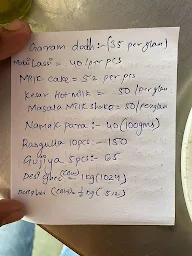 Garam dudh :- (35 per glass)
Lassi = 40 /per pcs
Milk cake = 52 per pcs
Kesar Hot milk = 50 /per glass
Masala Milk Shake = 50/per glass
Namak para :- 40 (100gms)
Rasgulla 10pcs - 150
Gujiya 5pcs :- 65
Desi ghee (cow) = 1kg (1024)
(cow) = 1/2 kg (512)